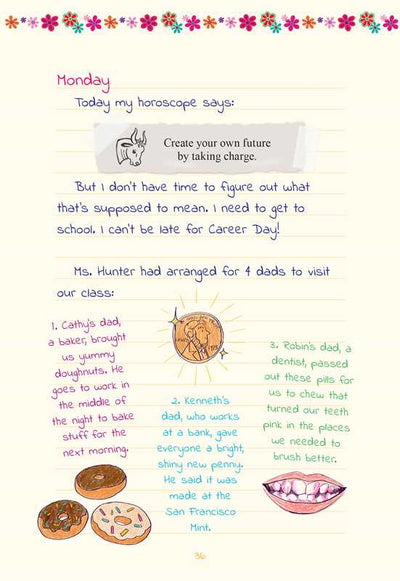 Monday
Today my horoscope says:
Create your own future
by taking charge.
But I don't have time to figure out what
that's supposed to mean. I need to get to
school. I can't be late for Career Day!
Ms. Hunter had arranged for 4 dads to visit
our class:
1. Cathy's dad,
a baker, brought
us yummy
doughnuts. He
goes to work in
the middle of
the night to bake
stuff for the
next morning.
2. Kenneth's
dad, who works
at a bank, gave
everyone a bright,
shiny new penny.
He said it was
made at the
San Francisco
Mint.
3. Robin's dad, a
dentist, passed
out these pills for
us to chew that
turned our teeth
pink in the places
we needed to
brush better.
36